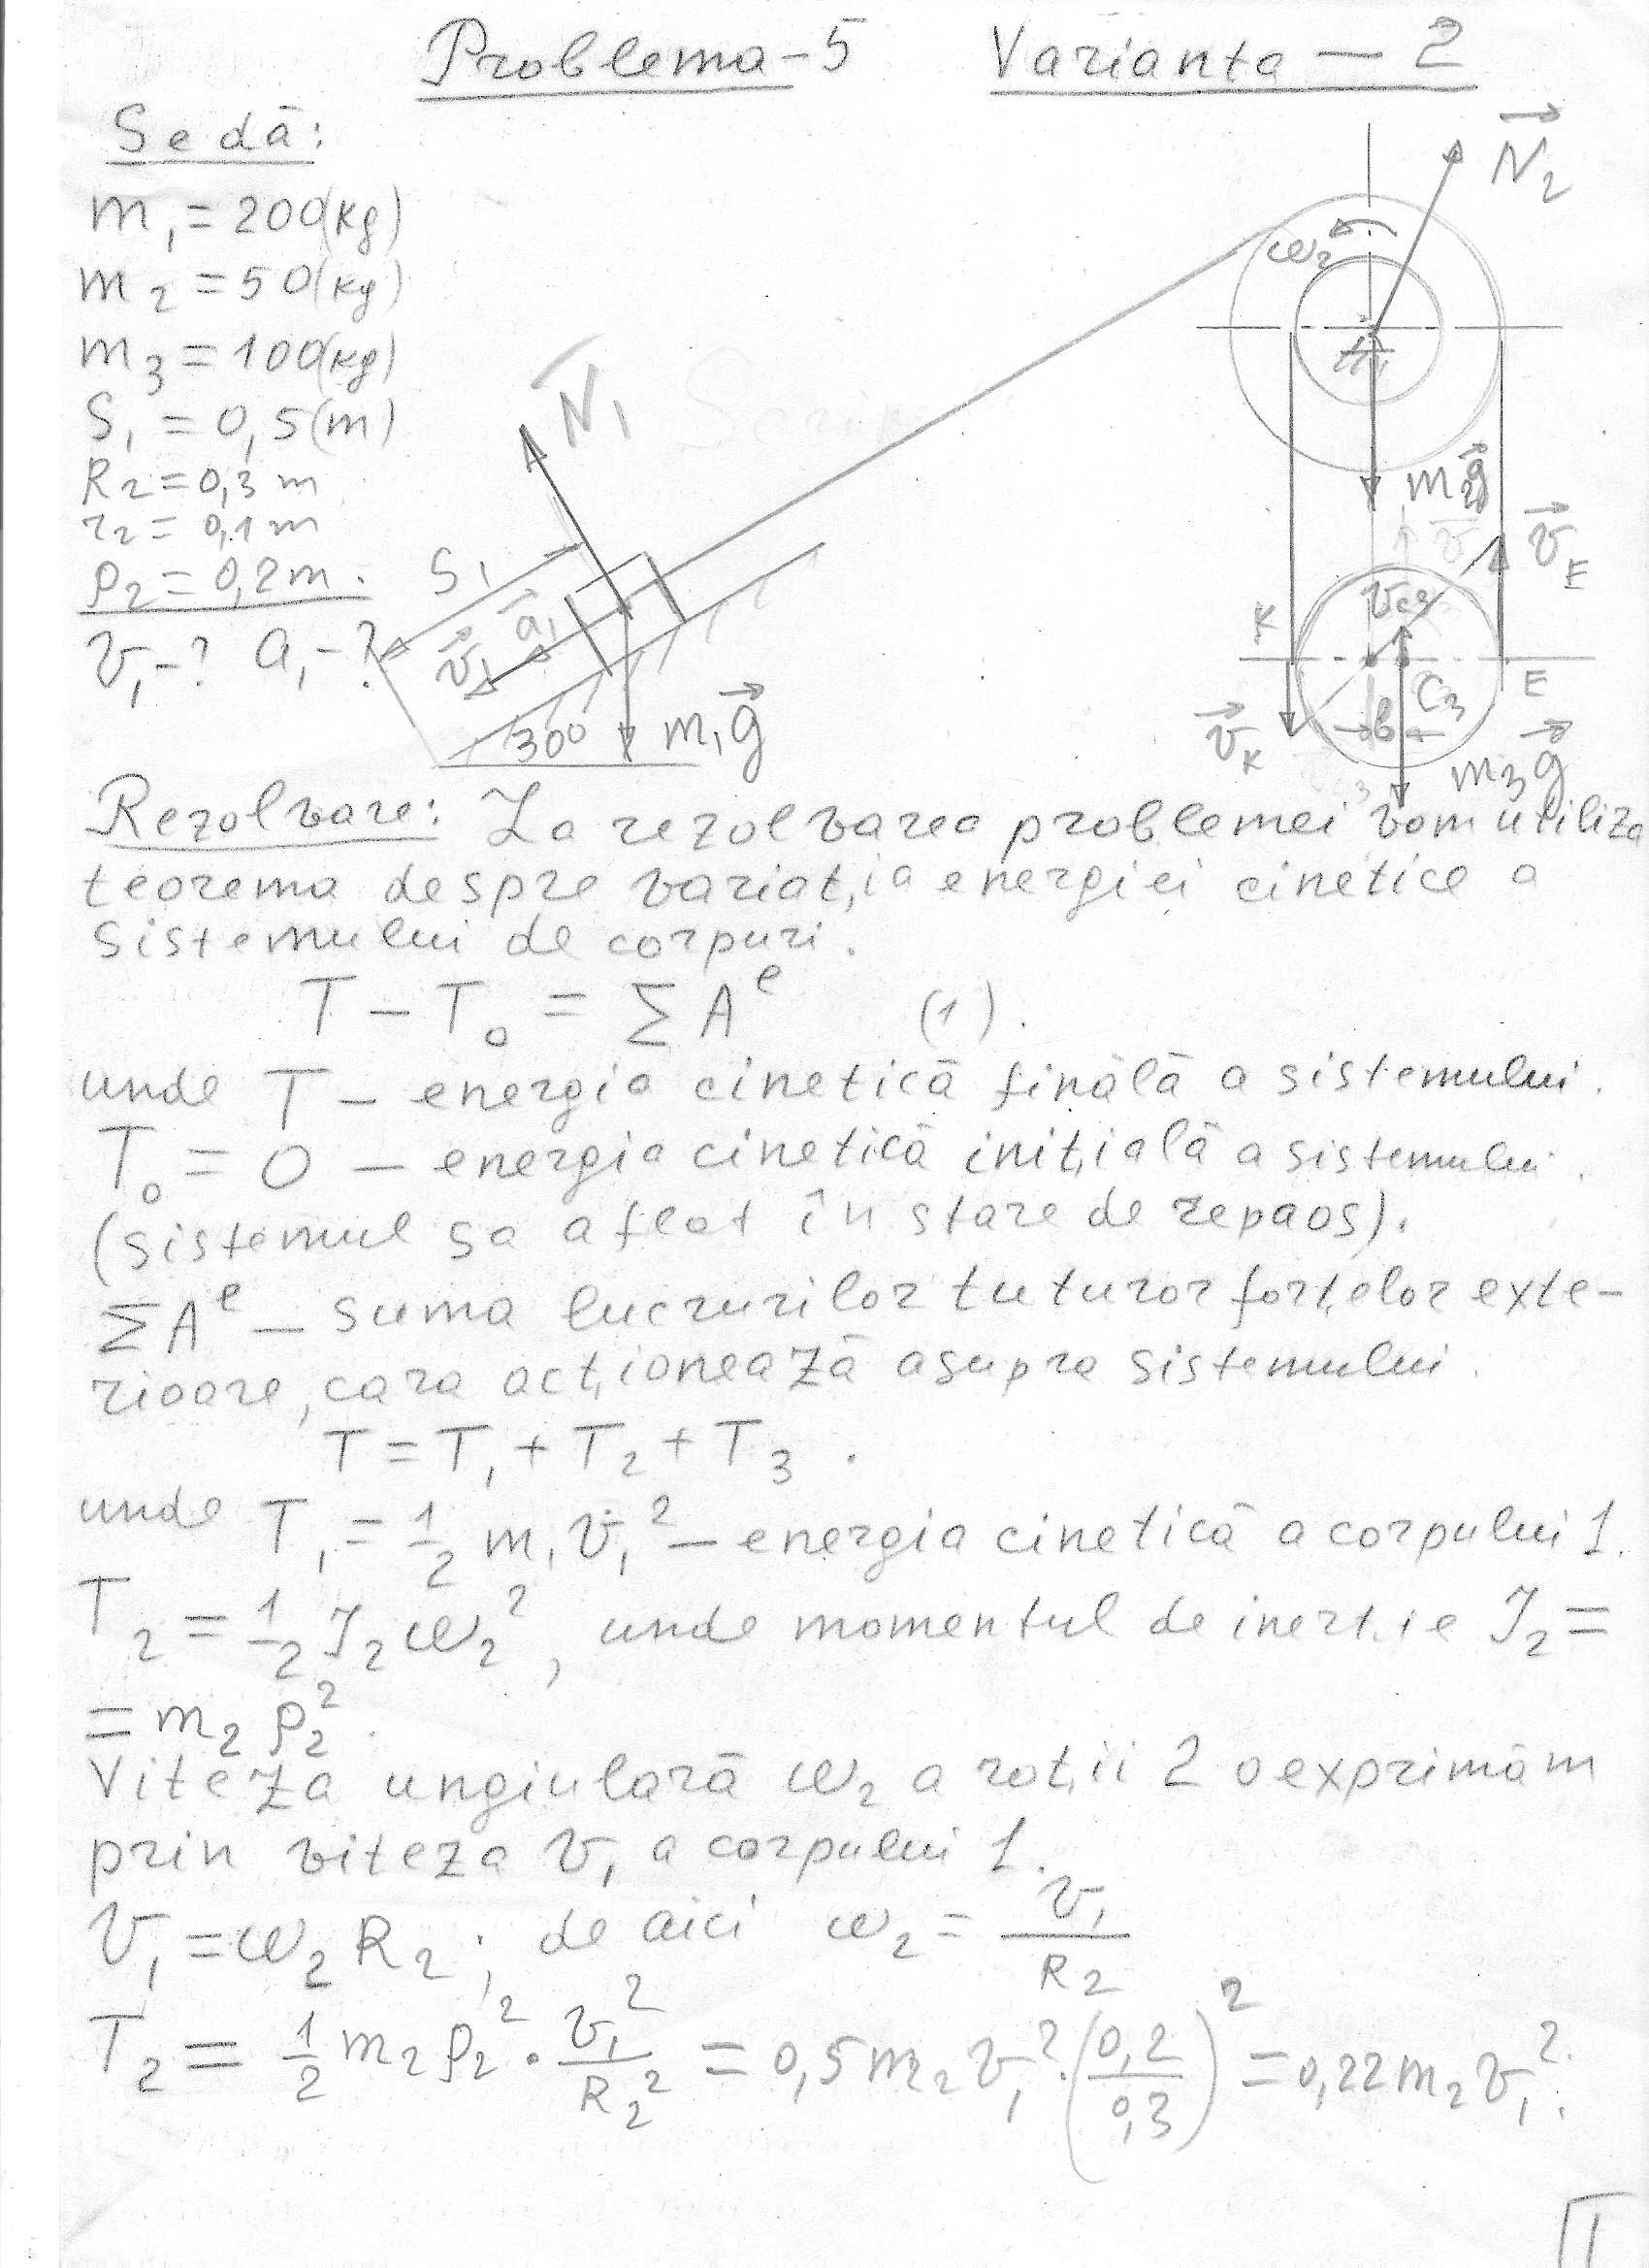 Problema-5 Varianta - 2
Se dă:
m₁ = 200(kg)
m₂ = 50(kg)
m₃ = 100(kg)
S₁ = 0,5(m)
R₂ = 0,3 m
r₂ = 0,1 m
ρ₂ = 0,2 m.
v₁-? a₁-?
N₁
S₁
a₁
v₁
30°
m₁g
N₂
ω₂
m₂g
v_E
v_C3
K
E
C₃
v_K
b
m₃g
Rezolvare: La rezolvarea problemei vom utiliza
teorema despre variația energiei cinetice a
sistemului de corpuri.
T - T₀ = ΣAᵉ (1).
unde T - energia cinetică finălă a sistemului.
T₀ = 0 - energia cinetică inițială a sistemului.
(sistemul sa aflat în stare de repaos).
ΣAᵉ - suma lucrurilor tuturor forțelor exte-
rioare, cara acționează asupra sistemului.
T = T₁ + T₂ + T₃.
unde T₁ = 1/2 m₁v₁² - energia cinetică a corpului 1.
T₂ = 1/2 J₂ω₂², unde momentul de inerție J₂ =
= m₂ρ₂².
Viteza ungiulară ω₂ a roții 2 o exprimăm
prin viteza v₁ a corpului 1.
v₁ = ω₂R₂; de aici ω₂ = v₁/R₂
T₂ = 1/2 m₂ρ₂² · v₁²/R₂² = 0,5m₂v₁² · (0,2/0,3)² = 0,22m₂v₁².